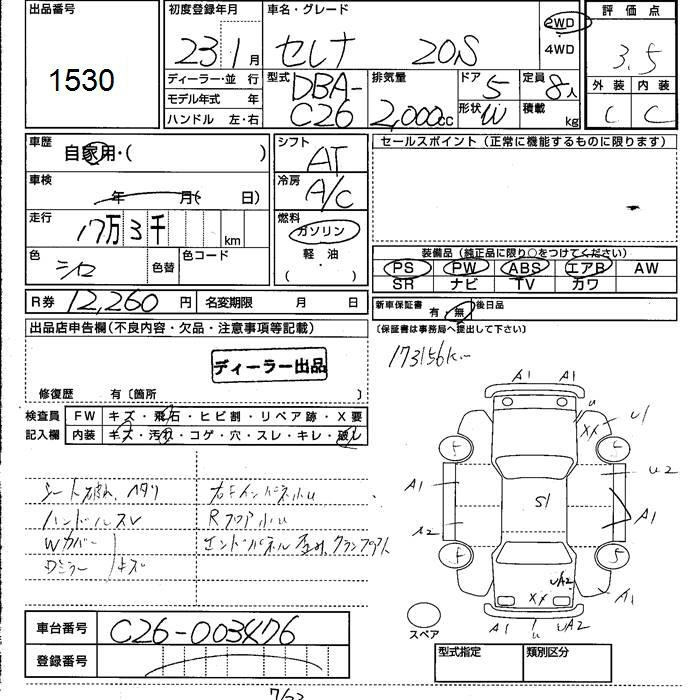 出品番号
1530
初度登録年月
23 1月
車名・グレード
セレナ 20S
2WD
4WD
評価点
3.5
外装 内装
C C
ディーラー・並行
モデル年式 年
ハンドル 左・右
型式
DBA-
C26
排気量
2,000cc
ドア 5
形状 W
定員 8人
積載 kg
車歴
自家用・( )
車検
年 月( 日)
走行
17万3千 km
色
シロ
色替
色コード
R券 12,260 円
名変期限 月 日
シフト
AT
冷房
A/C
燃料
ガソリン
軽・油
( )
セールスポイント(正常に機能するものに限ります)
装備品(純正品に限り○をつけてください)
PS PW ABS エアB AW
SR ナビ TV カワ
新車保証書 有・無 後日品
(保証書は事務局へ提出して下さい)
173156km
出品店申告欄(不良内容・欠品・注意事項等記載)
ディーラー出品
修復歴 有〔箇所 〕
検査員
記入欄
FW キズ・飛石・ヒビ割・リペア跡・X要
内装 キズ・汚れ・コゲ・穴・スレ・キレ・破レ
シート破れ、ヘタリ
ハンドルスレ
Wカバー
Dミラー キズ
右Fインパネ小U
Rフロア小U
エンドパネル
A1 A1
U
XX
U1
5 5
A1
U2
S1
A1
A2
5 5
UA2
XX
A1
A1 U UA2
スペア
車台番号 C26-003476
登録番号
型式指定 類別区分